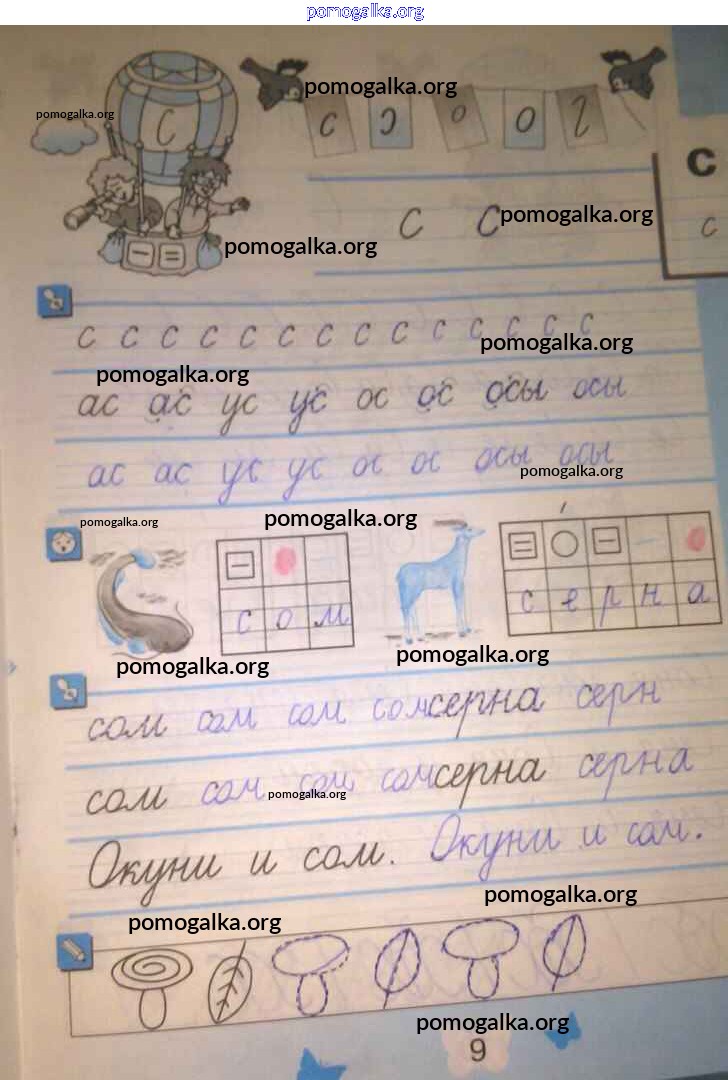 pomogalka.org
pomogalka.org
pomogalka.org
С
с с о о г
С
с
С С pomogalka.org
pomogalka.org
с с с с с с с с с с с с с с
pomogalka.org
pomogalka.org
ас ас ус ус ос ос осы осы
ас ас ус ус ос ос осы осы
pomogalka.org
pomogalka.org
pomogalka.org
с о м
с е р н а
pomogalka.org
pomogalka.org
сом сом сом сом серна серн
сом сом сом сом серна серна
pomogalka.org
Окуни и сом. Окуни и сом.
pomogalka.org
pomogalka.org
pomogalka.org
9